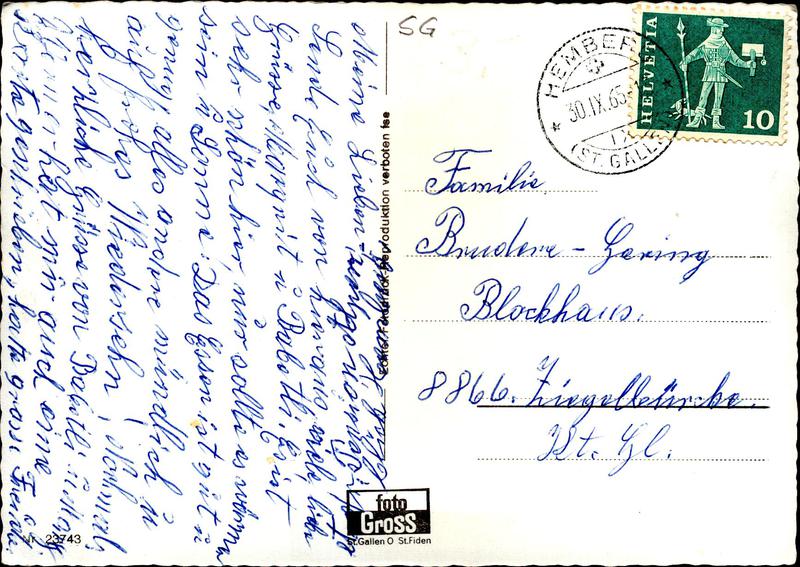 SG
HEMBERG
30.IX.65
(ST. GALLEN)
HELVETIA
10
Familie
Bruderer-Gering
Blockhaus.
8866. Ziegelbrücke.
Kt. Gl.
Meine Lieben
sende Euch von hier aus viele liebe
Grüsse, Margrit u Babettli. Es ist
sehr schön hier, nur sollte es wärmer
sein u Sonne. Das Essen ist gut u
genug alles andere mündlich u
auf frohes Wiedersehn, nochmals
herzliche Grüsse von Babettli u Marg
hat mir auch eine
Karte geschrieben, hatte grosse Freude.
Echte Fotodruck Reproduktion verboten fse
foto
GROSS
St. Gallen O St. Fiden
Nr. 23743